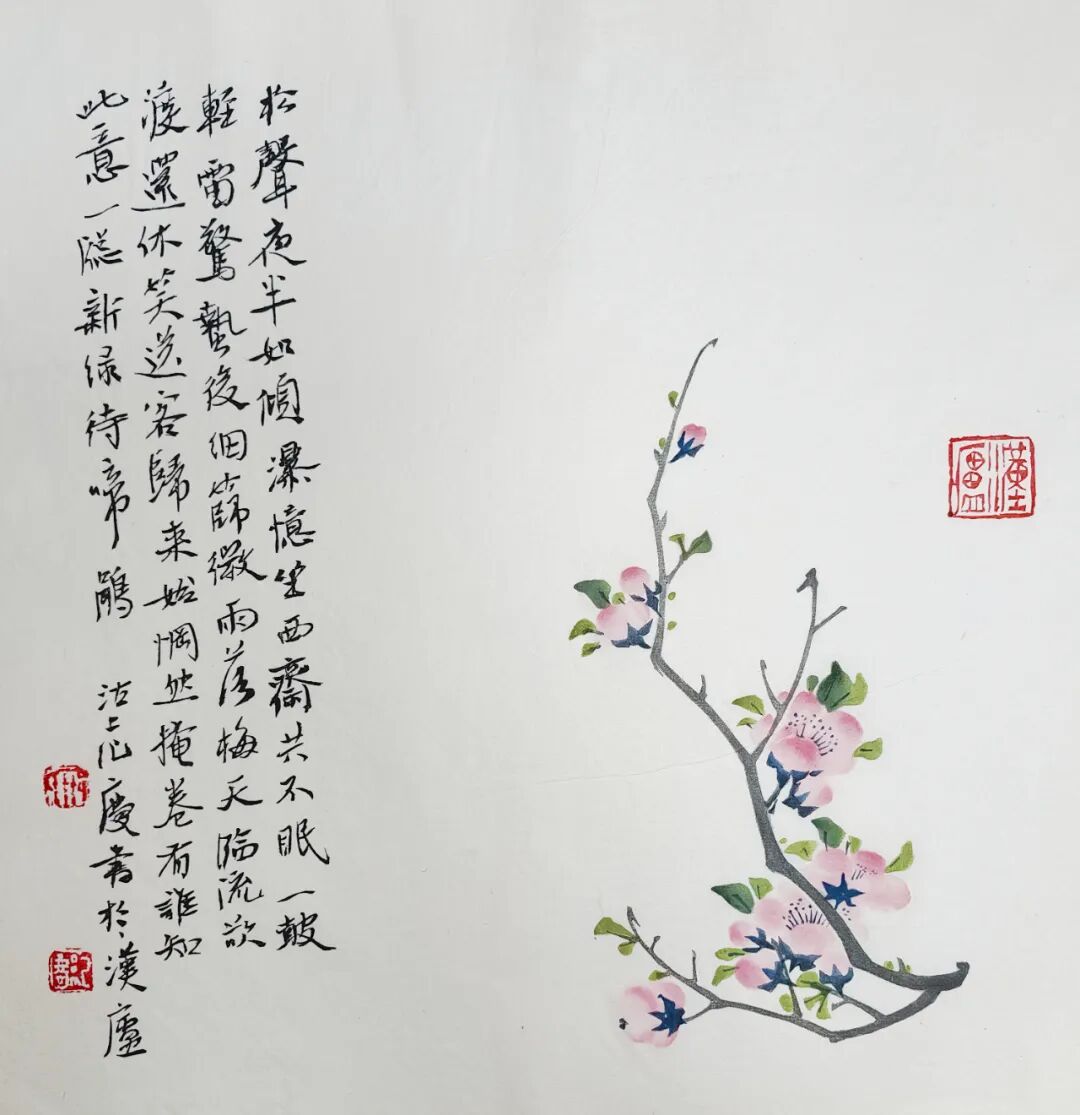 松聲夜半如傾瀑憶坐西齋共不眠一鼓
輕雷驚蟄後細篩微雨落梅天臨流欲
渡還休笑送客歸来始惘然掩卷有誰知
此意一牕新绿待啼鵑 沽上慶書於漢廬
漢廬